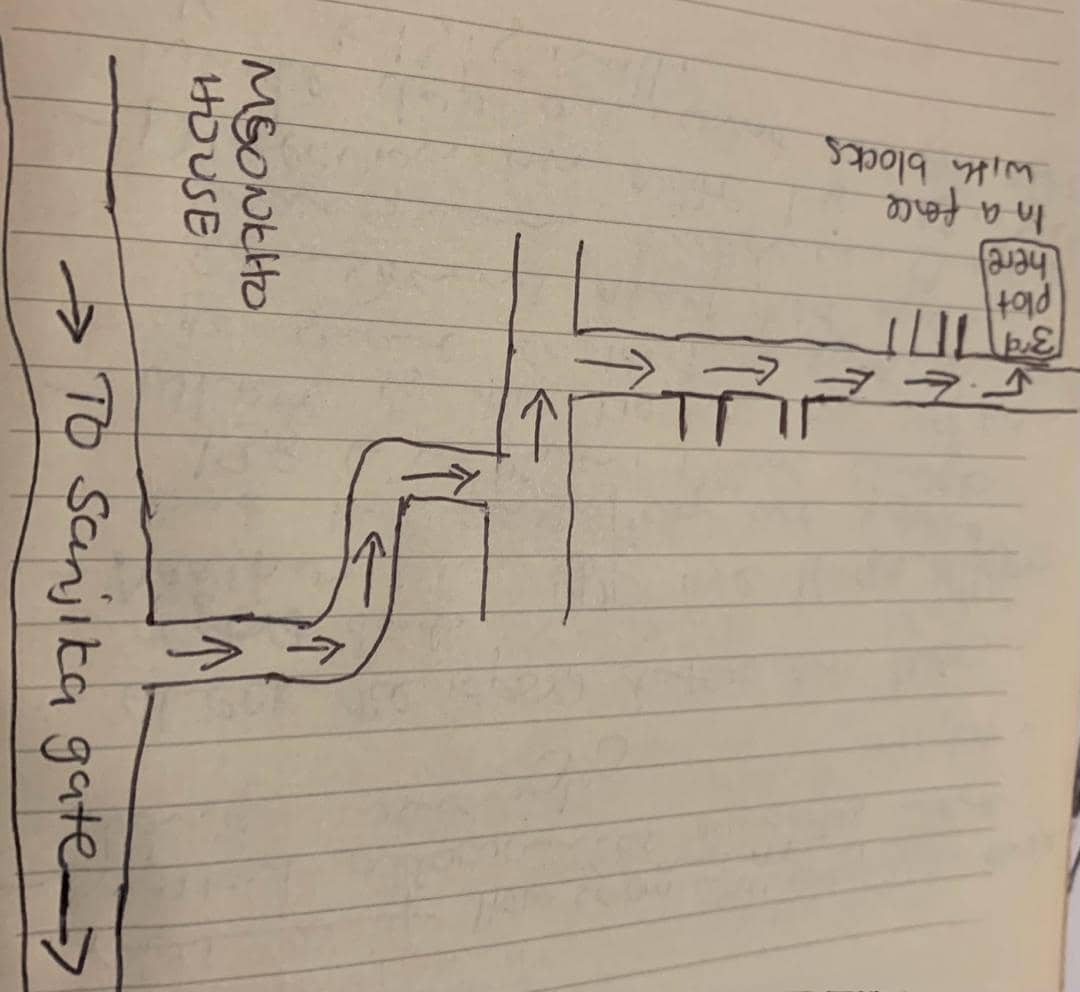 MSONKHO
HOUSE
→ To Sanjika gate →
3rd
plot
here
In a fence
with blocks